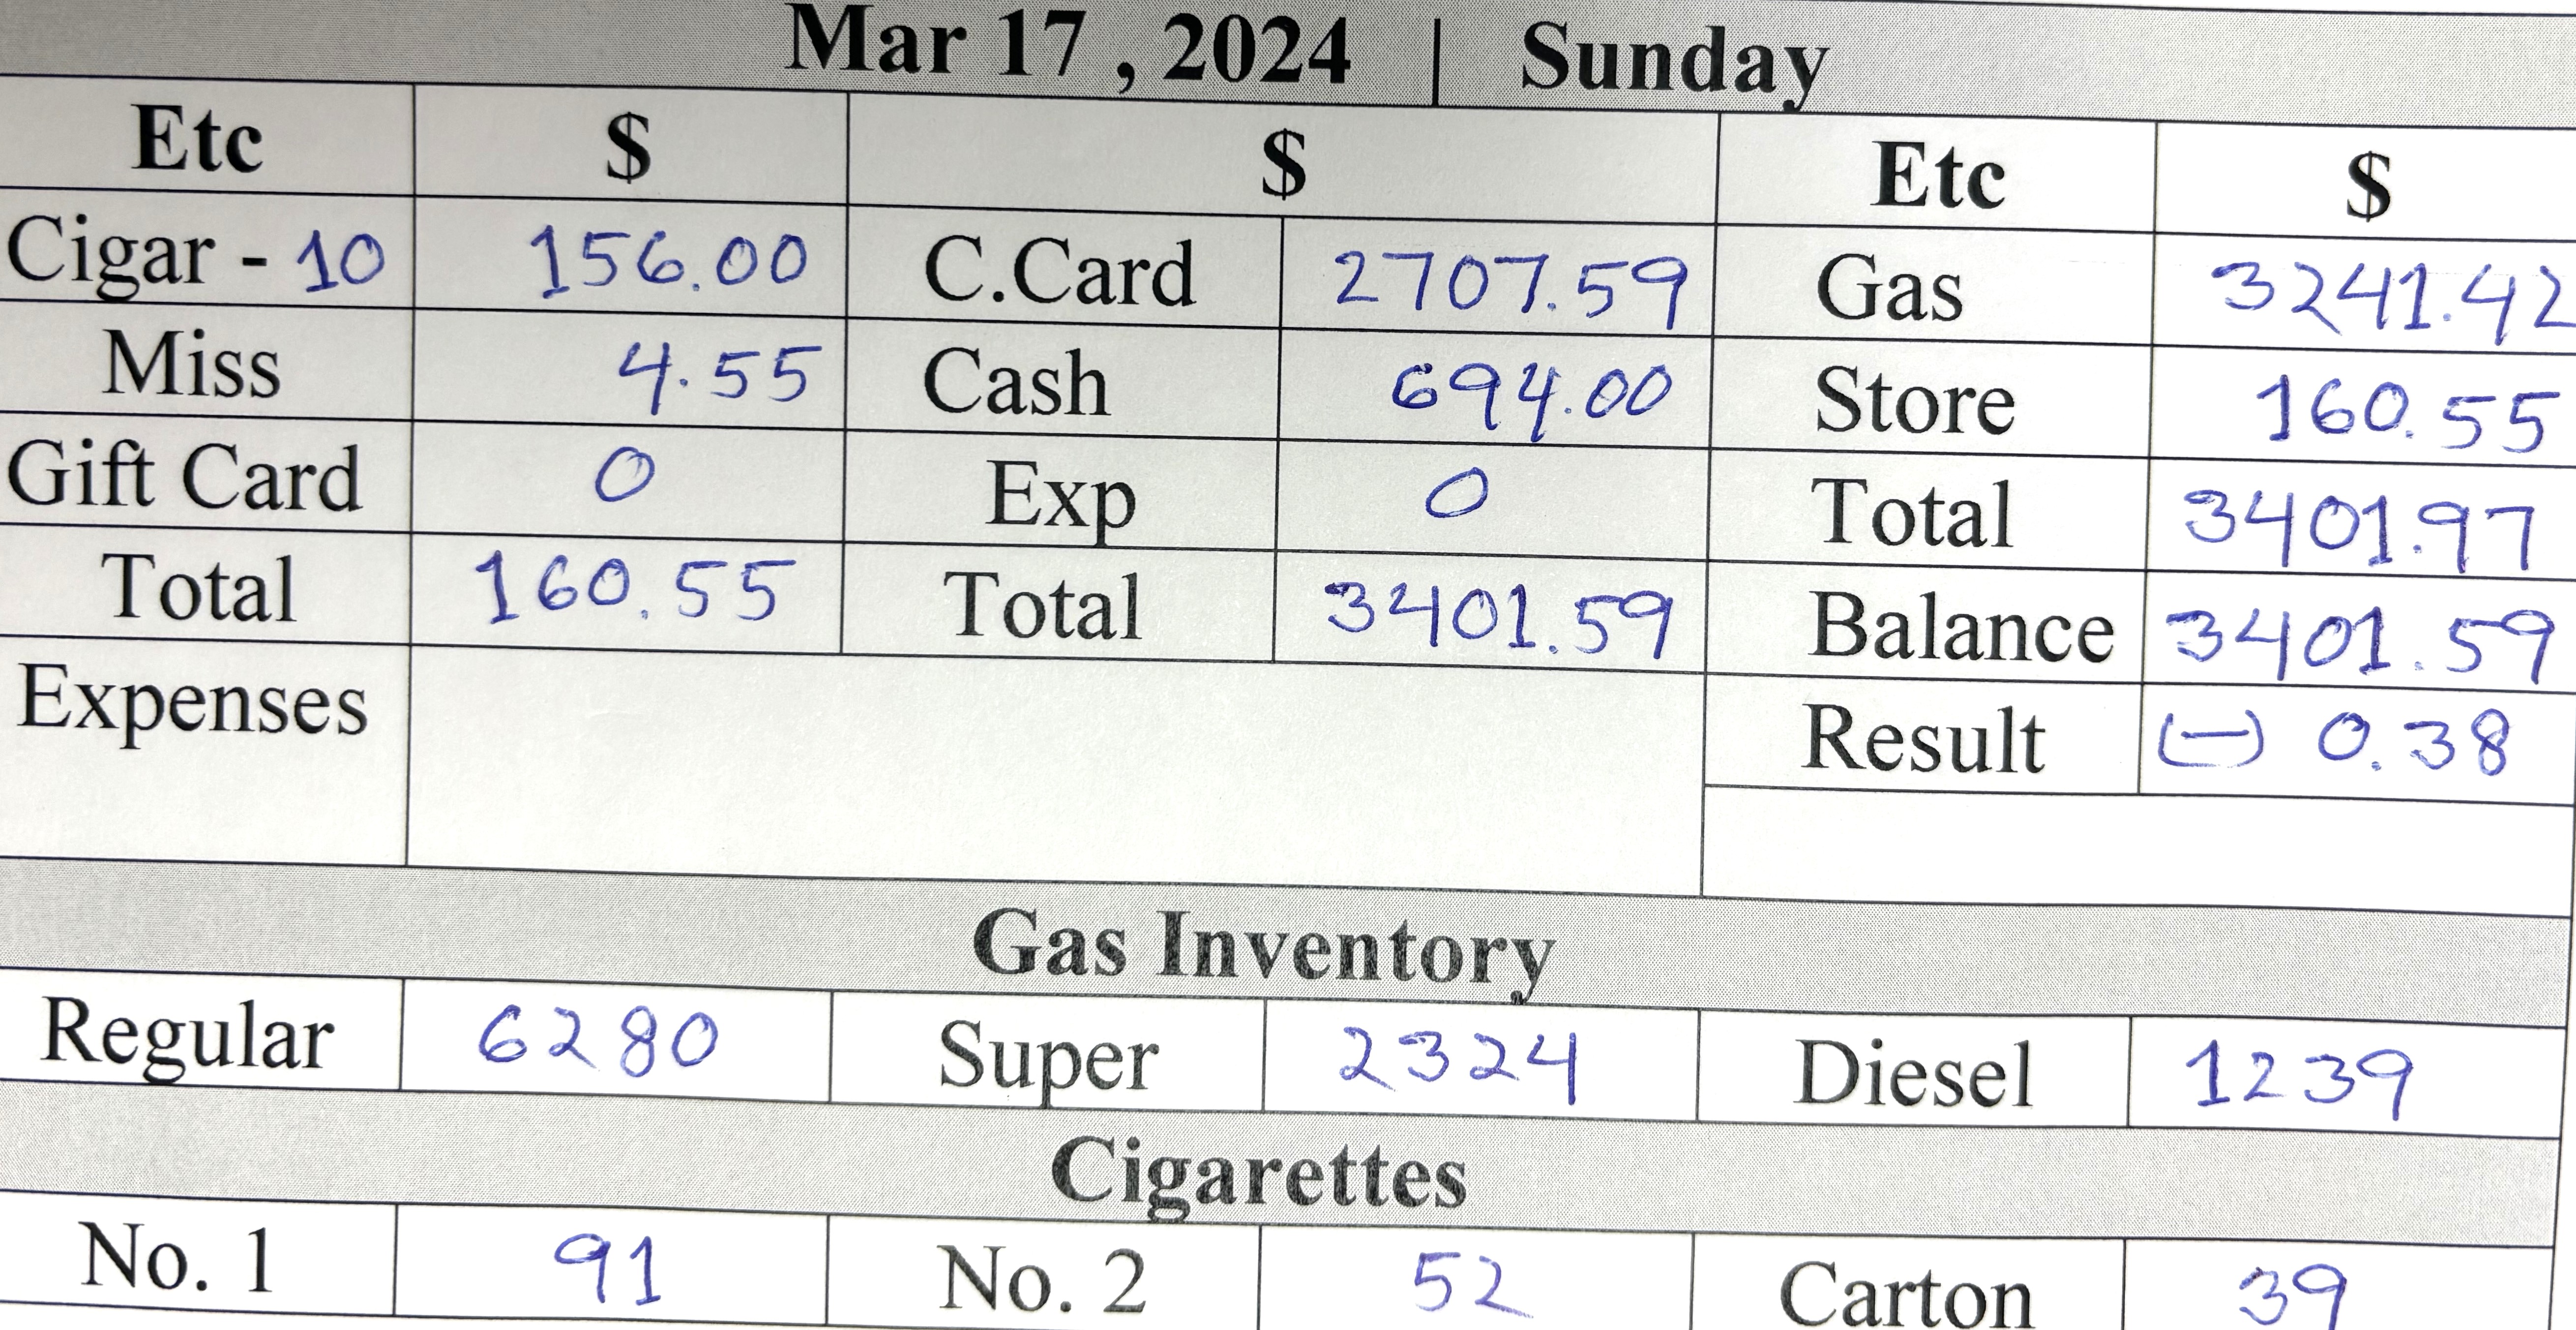 Mar 17 , 2024 | Sunday
Etc $ $ Etc $
Cigar - 10 156.00 C.Card 2707.59 Gas 3241.42
Miss 4.55 Cash 694.00 Store 160.55
Gift Card 0 Exp 0 Total 3401.97
Total 160.55 Total 3401.59 Balance 3401.59
Expenses Result (-) 0.38
Gas Inventory
Regular 6280 Super 2324 Diesel 1239
Cigarettes
No. 1 91 No. 2 52 Carton 39